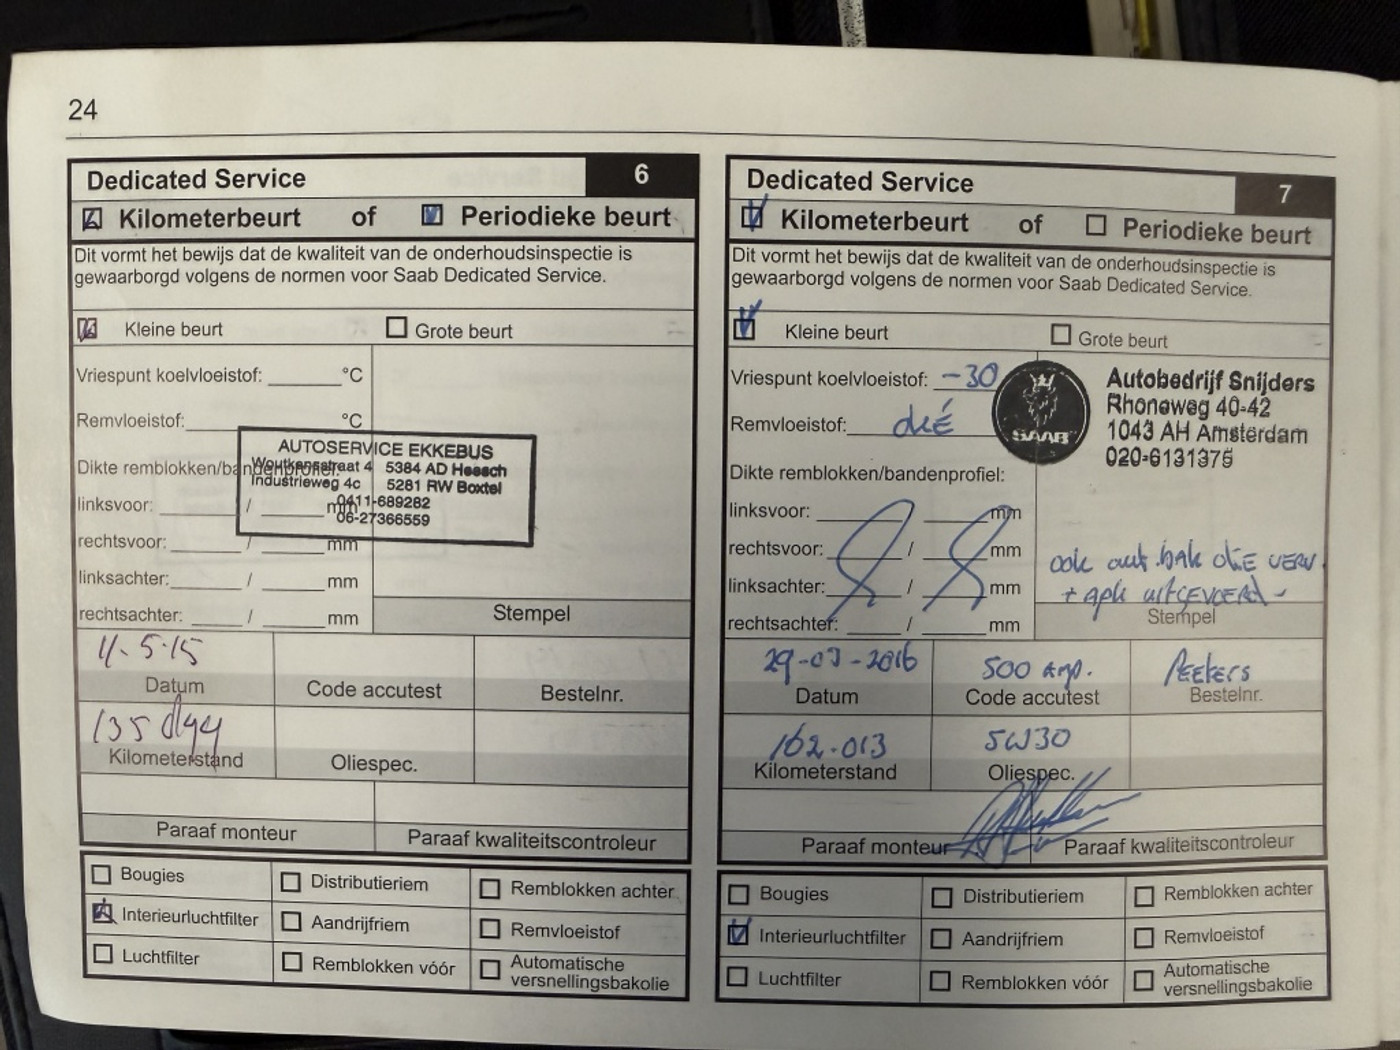 24
Dedicated Service 6
Kilometerbeurt of Periodieke beurt
Dit vormt het bewijs dat de kwaliteit van de onderhoudsinspectie is
gewaarborgd volgens de normen voor Saab Dedicated Service.
Kleine beurt Grote beurt
Vriespunt koelvloeistof: °C
Remvloeistof: °C
Dikte remblokken/bandenprofiel:
linksvoor: / mm
rechtsvoor: / mm
linksachter: / mm
rechtsachter: / mm
AUTOSERVICE EKKEBUS
Woutkensstraat 4 5384 AD Heesch
Industrieweg 4c 5281 RW Boxtel
0411-689282
06-27366559
Stempel
11-5-15
Datum Code accutest Bestelnr.
135
Kilometerstand Oliespec.
Paraaf monteur Paraaf kwaliteitscontroleur
Bougies Distributieriem Remblokken achter
Interieurluchtfilter Aandrijfriem Remvloeistof
Luchtfilter Remblokken vóór Automatische
versnellingsbakolie
Dedicated Service 7
Kilometerbeurt of Periodieke beurt
Dit vormt het bewijs dat de kwaliteit van de onderhoudsinspectie is
gewaarborgd volgens de normen voor Saab Dedicated Service.
Kleine beurt Grote beurt
Vriespunt koelvloeistof: -30
Remvloeistof: oké
Dikte remblokken/bandenprofiel:
linksvoor: / mm
rechtsvoor: / mm
linksachter: / mm
rechtsachter: / mm
SAAB
Autobedrijf Snijders
Rhoneweg 40-42
1043 AH Amsterdam
020-6131375
ook aut.bak olie verv.
+ apk uitgevoerd-
Stempel
29-03-2016 500 amp. Peekers
Datum Code accutest Bestelnr.
162.013 5W30
Kilometerstand Oliespec.
Paraaf monteur Paraaf kwaliteitscontroleur
Bougies Distributieriem Remblokken achter
Interieurluchtfilter Aandrijfriem Remvloeistof
Luchtfilter Remblokken vóór Automatische
versnellingsbakolie